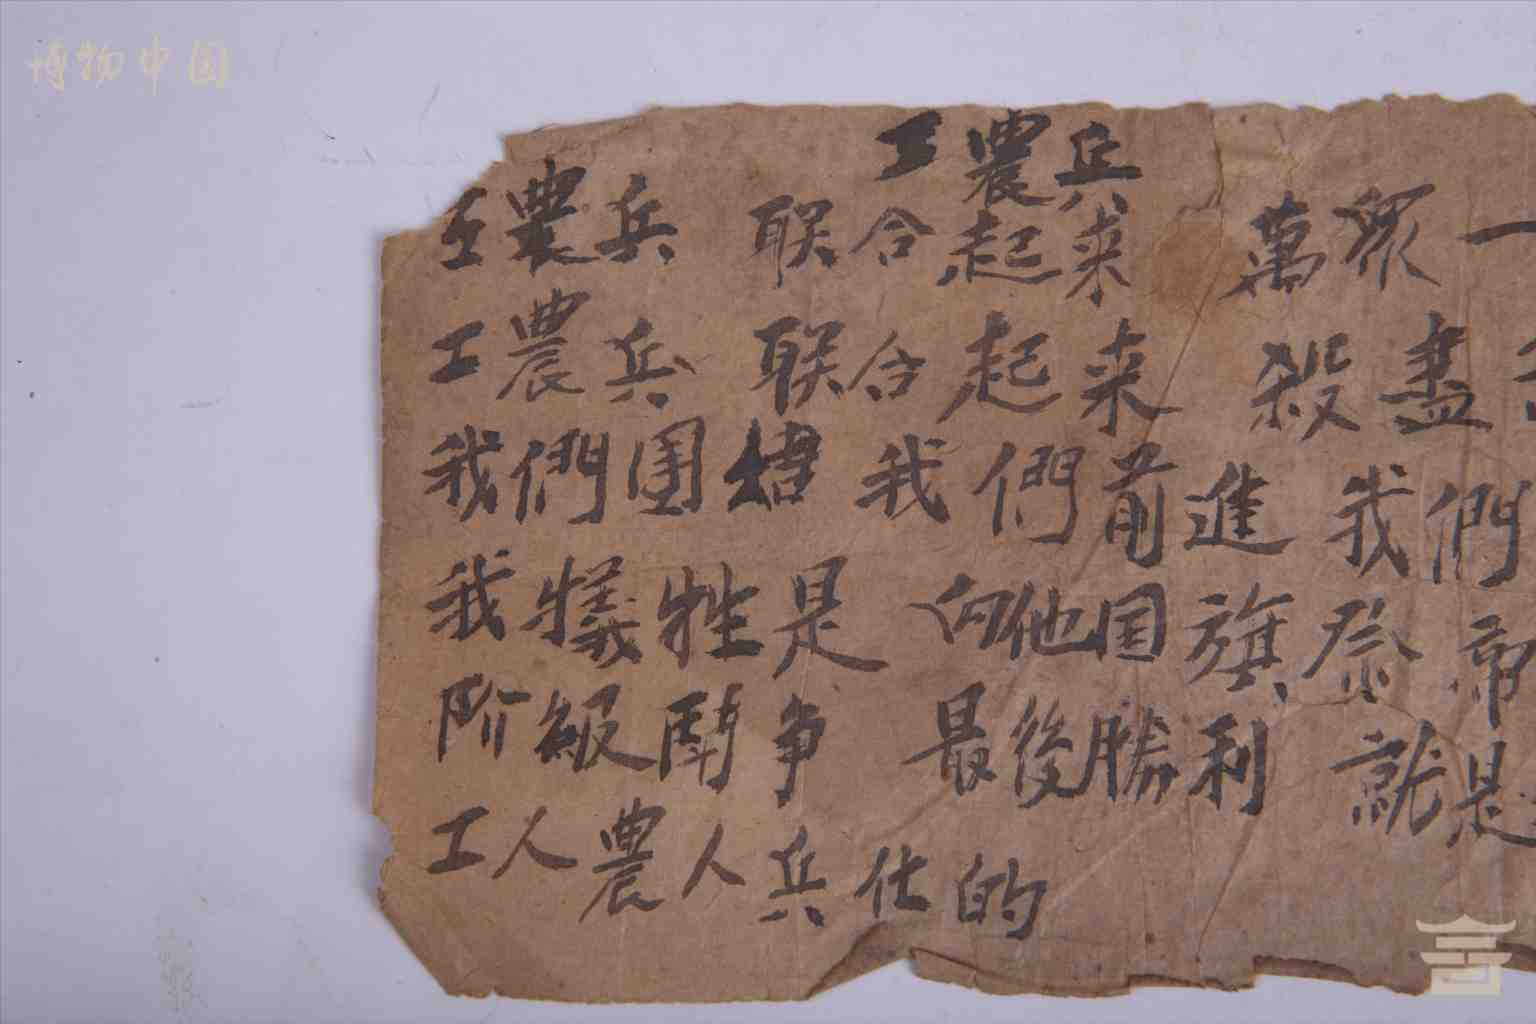 博物中国
工農兵
工農兵 联合起来 萬眾一
工農兵 联合起来 殺盡
我們團结 我們前進 我們
我犠牲是 向他国旗祭 帝
阶級鬥争 最後勝利 就是
工人農人兵仕的